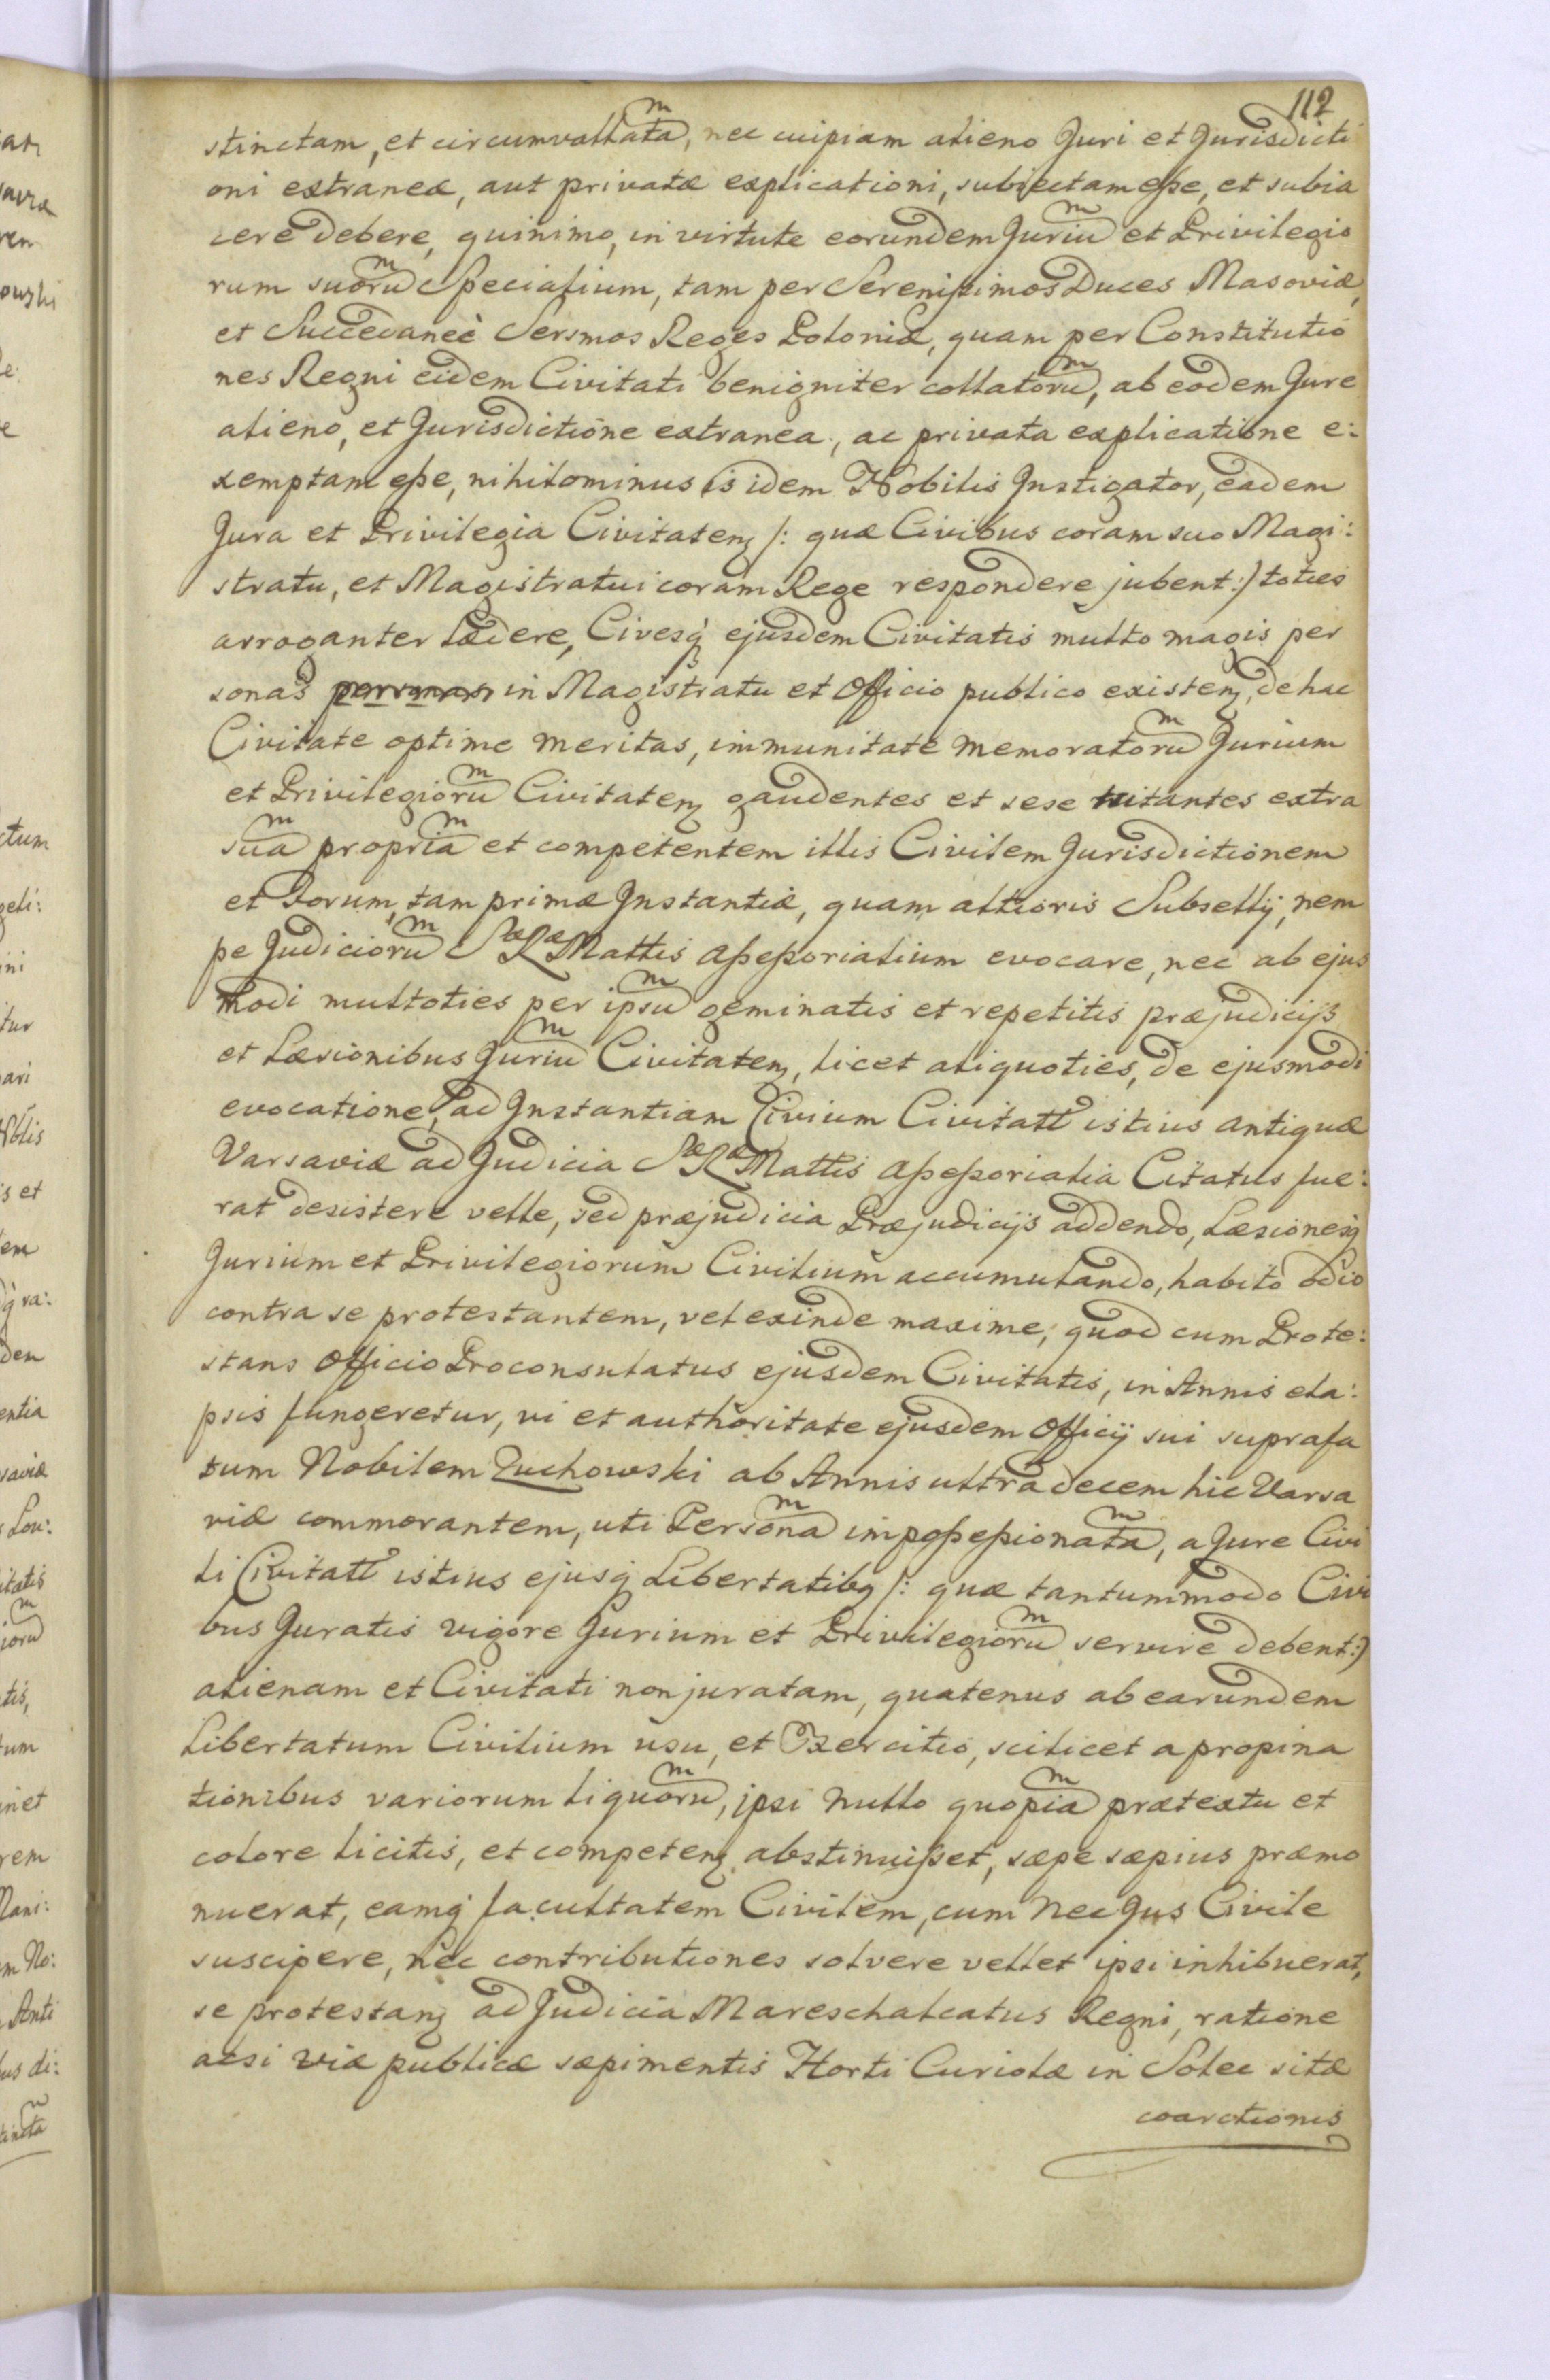 112
stinctam, et circumvallatam, nec cuipiam alieno Juri et Jurisdicti
oni extraneæ, aut privatæ explicationi, subjectam eße, et subia
cere debere, quinimo, in virtute eorundem Jurium et Privilegio
rum suorum Specialium, tam per Sereniſsimos Duces Masoviæ,
et Succedaneè Sersmos Reges Poloniæ, quam per Constitutio
nes Regni eidem Civitati benigniter collatorum, ab eodem Jure
alieno, et Jurisdictione extranea, ac privata explicatione e:
xemptam eße, nihilominus is idem Nobilis Instigator, eadem
Jura et Privilegia Civitateñ /: quæ Civibus coram suo Magi:
stratu, et Magistratui coram Rege respondere jubent :/ toties
arroganter lædere, Civesq̃ ejusdem Civitatis multo magis per
sonas personas in Magistratu et Officio publico existeñ, de hac
Civitate optime meritas, immunitate memoratorum Jurium
et Privilegiorum Civitateñ gaudentes et sese tuitantes extra
suam propriam et competentem illis Civilem Jurisdictionem
et Forum, tam primæ Instantiæ, quam altioris Subsellÿ, nem
pe Judiciorum Sæ Ræ Mattis Aßeßorialium evocare, nec ab ejus
modi multoties per ipsum geminatis et repetitis præjudicijs
et Læsionibus Jurium Civitateñ, licet aliquoties, de ejusmodi
evocatione, ad Instantiam Civium Civitatt istius Antiquæ
Varsaviæ ad Judicia Sæ Ræ Mattis Aßeßorialia Citatus fue:
rat desistere velle, sed præjudicia Præjudicijs addendo, Læsionesq̃
Jurium et Privilegiorum Civilium accumulando, habito odio
contra se protestantem, vel exinde maxime, quod cum Prote:
stans Officio Proconsulatus ejusdem Civitatis, in Annis ela:
psis fungeretur, vi et authoritate ejusdem Officÿ sui suprafa
tum Nobilem Zuchowski ab Annis ultra decem hic Varsa
viæ commorantem, uti Personam impoßeßionatam, a Jure Civi
li Civitatt istius ejusq̃ Libertatibq̃ /: quæ tantummodo Civi
bus Juratis vigore Jurium et Privilegiorum servire debent :/
alienam et Civitati non juratam, quatenus ab earundem
Libertatum Civilium usu, et Exercitio, scilicet a propina
tionibus variorum liquorum, ipsi nullo quopiam prætextu et
colore licitis, et competeñ abstinuißet, sæpe sæpius præmo
nuerat, eamq̃ facultatem Civilem, cum nec Jus Civile
suscipere, nec contributiones solvere vellet ipsi inhibuerat,
se protestañ ad Judicia Mareschalcatus Regni, ratione
acsi viæ publicæ sæpimentis Horti Curiolæ in Solec sitæ
coarctionis